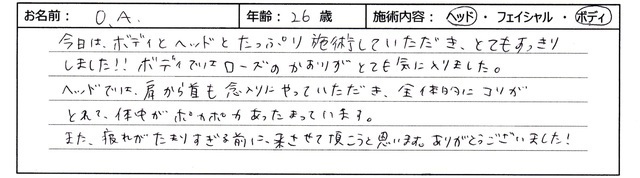 お名前： O.A. 年齢：26歳 施術内容：ヘッド・フェイシャル・ボディ
今日は、ボディとヘッドとたっぷり施術していただき、とてもすっきり
しました!! ボディではローズのかおりがとても気に入りました。
ヘッドでは、肩から首も念入りにやっていただき、全体的にコリが
とれて、体中がポカポカあったまっています。
また、疲れがたまりすぎる前に、来させて頂こうと思います。ありがとうございました！